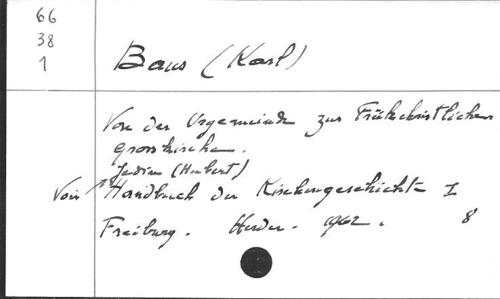 66
38
1
Baus (Karl)
Von der Urgemeinde zur Frühchristlichen
Grosskirche.
Jedin (Hubert)
Voir Handbuch der Kirchengeschichte I
Freiburg. Herder. 1962. 8